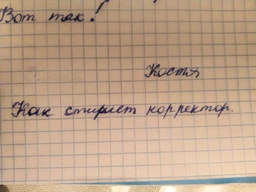 Вот так!
Костя
Как стирает корректор.